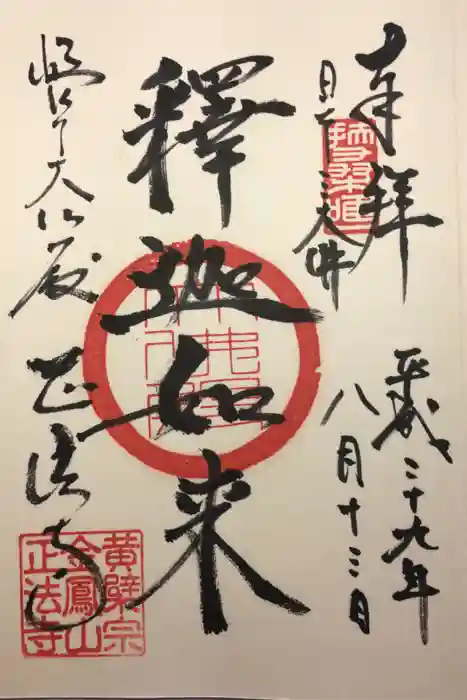 奉拝
日本三大佛
平成二十九年
八月十三日
釋迦如来
岐阜大仏殿
正法寺
黄檗宗
金鳳山
正法寺